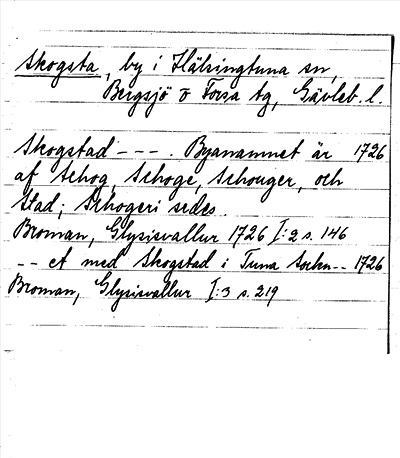 Skogsta, by i Hälsingtuna sn,
Bergsjö o Forsa tg, Gävleb. l.
Skogstad --- . Byanamnet är 1726
af Schog, Schoge, Schouger, och
Stad; Schogeri sedes.
Broman, Glysisvallur 1726 I:2 s. 146
-- et med Skogstad i Tuna sockn -- 1726
Broman, Glysisvallur I:3 s. 219